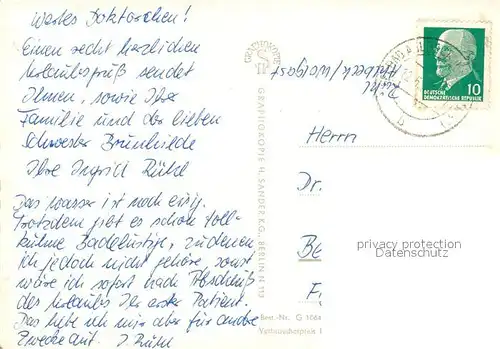 Wertes Doktorchen!
Einen recht herzlichen
Urlaubsgruß sendet
Ihnen, sowie Ihre
Familie und der lieben
Schwester Brunhilde
Ihre Ingrid Rühl
Das Wasser ist noch eisig.
Trotzdem gibt es schon toll-
kühne Badelustige, zu denen
ich jedoch nicht gehöre, sonst
wäre ich sofort nach Abschluß
des Urlaubs Ihr erster Patient.
Das hebe ich mir aber für andre
Zwecke auf. I. Rühl
GRAPHOKOPIE
GRAPHOKOPIE H. SANDER K.G., BERLIN N 113
Best.-Nr. G 1064
Verbraucherpreis
Rühl
/Wolgast
10
DEUTSCHE
DEMOKRATISCHE REPUBLIK
Herrn
Dr.
Be
F
privacy protection
Datenschutz